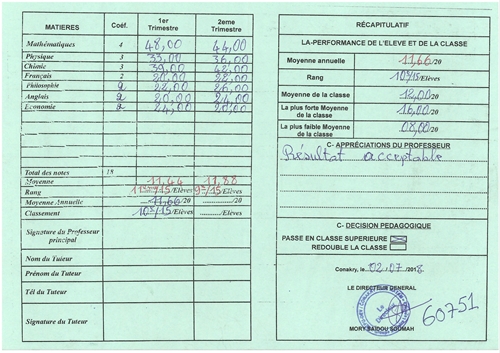 MATIERES Coéf. 1er Trimestre 2eme Trimestre
Mathématiques 4 48,00 44,00
Physique 3 33,00 36,00
Chimie 3 39,00 42,00
Français 2 20,00 22,00
Philosophie 2 22,00 26,00
Anglais 2 20,00 24,00
Economie 2 24,00 20,00
Total des notes 18
Moyenne 11,44 11,88
Rang 11e/15/Elèves 9e/15/Elèves
Moyenne Annuelle 11,66/20 /20
Classement 10e/15/Elèves /Elèves
Signature du Professeur principal
Nom du Tuteur
Prénom du Tuteur
Tél du Tuteur
Signature du Tuteur
RÉCAPITULATIF
LA-PERFORMANCE DE L'ELEVE ET DE LA CLASSE
Moyenne annuelle 11,66/20
Rang 10e/15/Elèves
Moyenne de la classe 12,00/20
La plus forte Moyenne de la classe 16,00/20
La plus faible Moyenne de la classe 08,00/20
C- APPRÉCIATIONS DU PROFESSEUR
Résultat acceptable
C- DECISION PEDAGOGIQUE
PASSE EN CLASSE SUPERIEURE
REDOUBLE LA CLASSE
Conakry, le 02/07/2018
LE DIRECTEUR GENERAL
MORY SAIDOU SOUMAH
60751